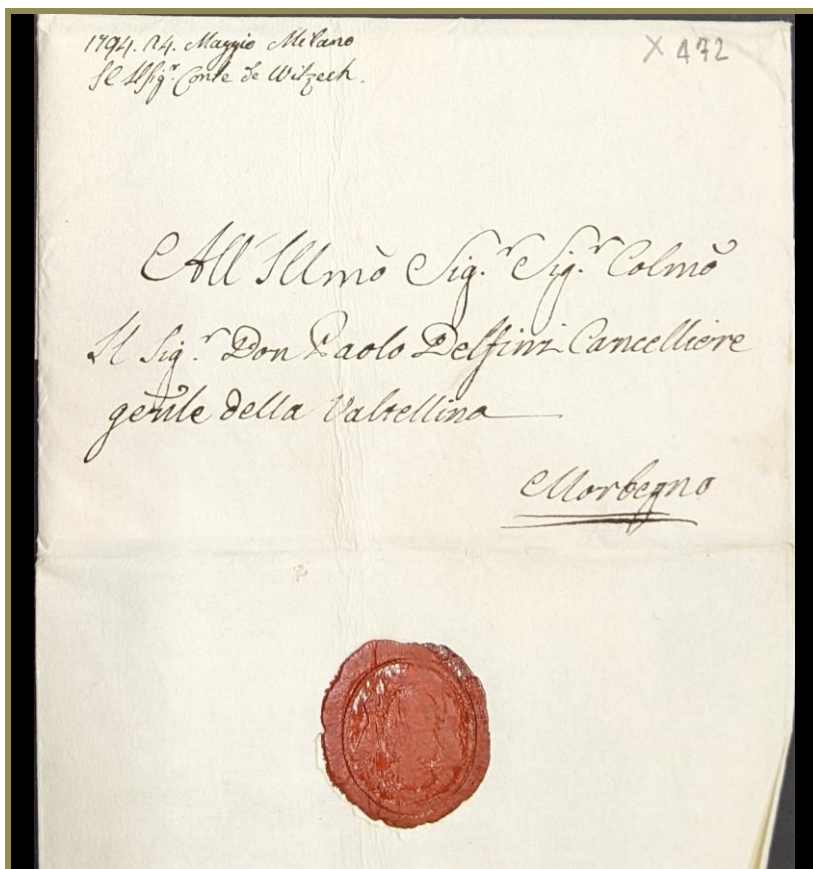 1794. 24. Maggio Milano
X 472
Sigr. Conte de Wilzech.
All'Illmo Sig.r Sig.r Colmo
Il Sig.r Don Paolo Delfini Cancelliere
gen̄le della Valtellina
Morbegno